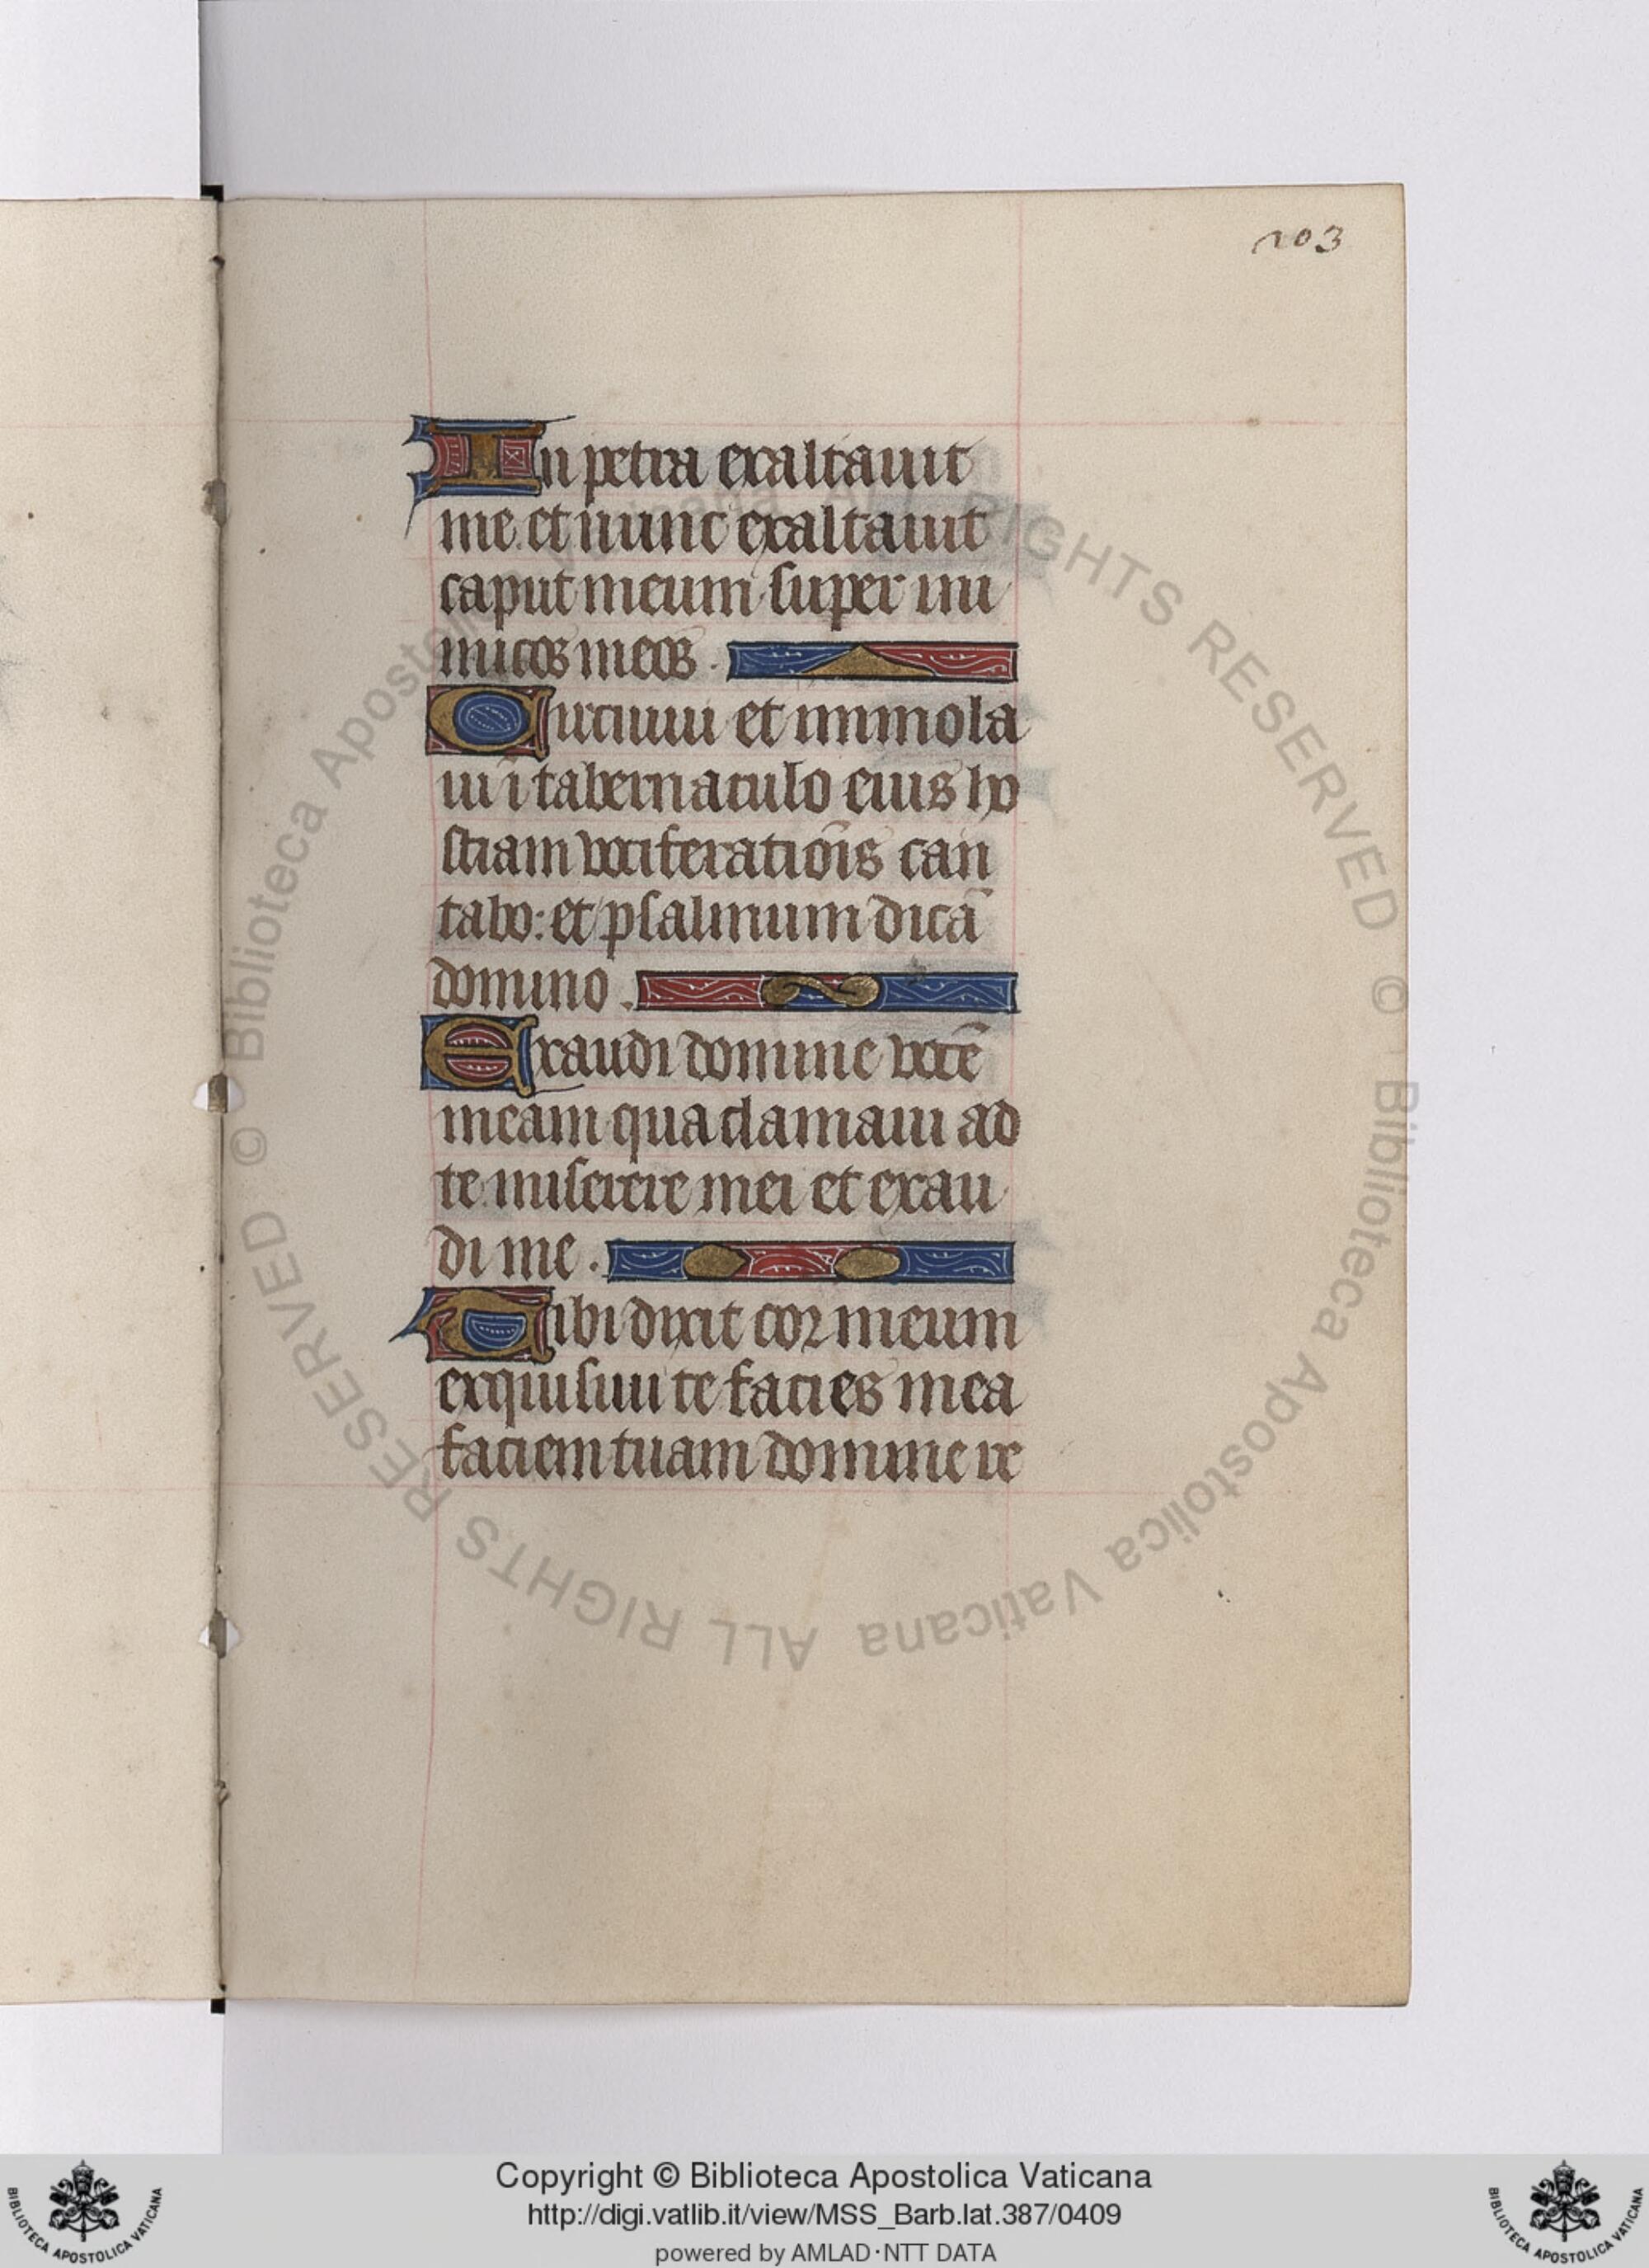 203
In petra exaltauit
me. et nunc exaltauit
caput meum super ini
micos meos.
Circuiui et immola
ui ī tabernaculo eius ho
stiam vociferatiōis can
tabo: et psalmum dicā
domino.
Exaudi domine vocē
meam qua clamaui ad
te miserere mei et exau
di me.
Tibi dixit cor meum
exquisiui te facies mea
faciem tuam domine re
© Biblioteca Apostolica Vaticana ALL RIGHTS RESERVED © Biblioteca Apostolica Vaticana ALL RIGHTS RESERVED
Copyright © Biblioteca Apostolica Vaticana
http://digi.vatlib.it/view/MSS_Barb.lat.387/0409
powered by AMLAD·NTT DATA
BIBLIOTECA APOSTOLICA VATICANA
BIBLIOTECA APOSTOLICA VATICANA